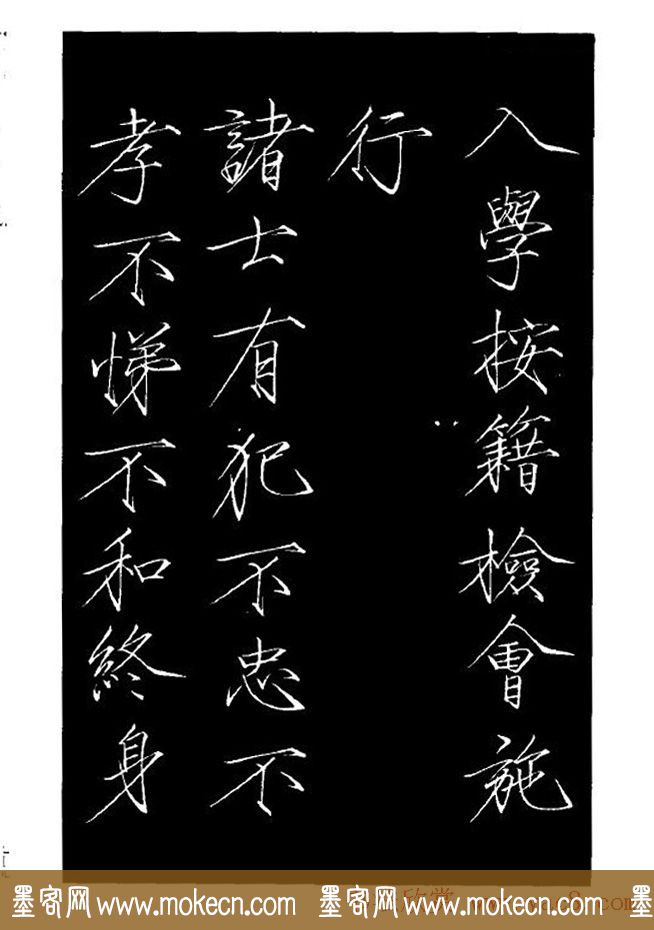 入學按籍檢會施
行
諸士有犯不忠不
孝不悌不和終身
墨客网 www.mokecn.com 墨客网 www.mokecn.com 墨客网